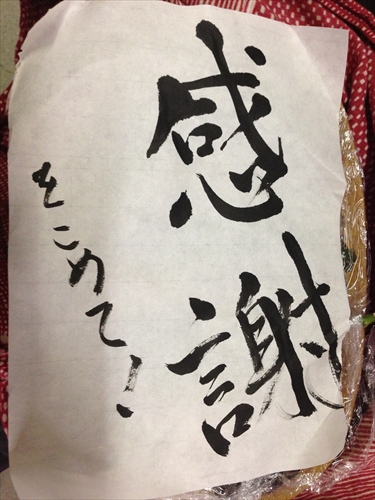 感謝
をこめて!